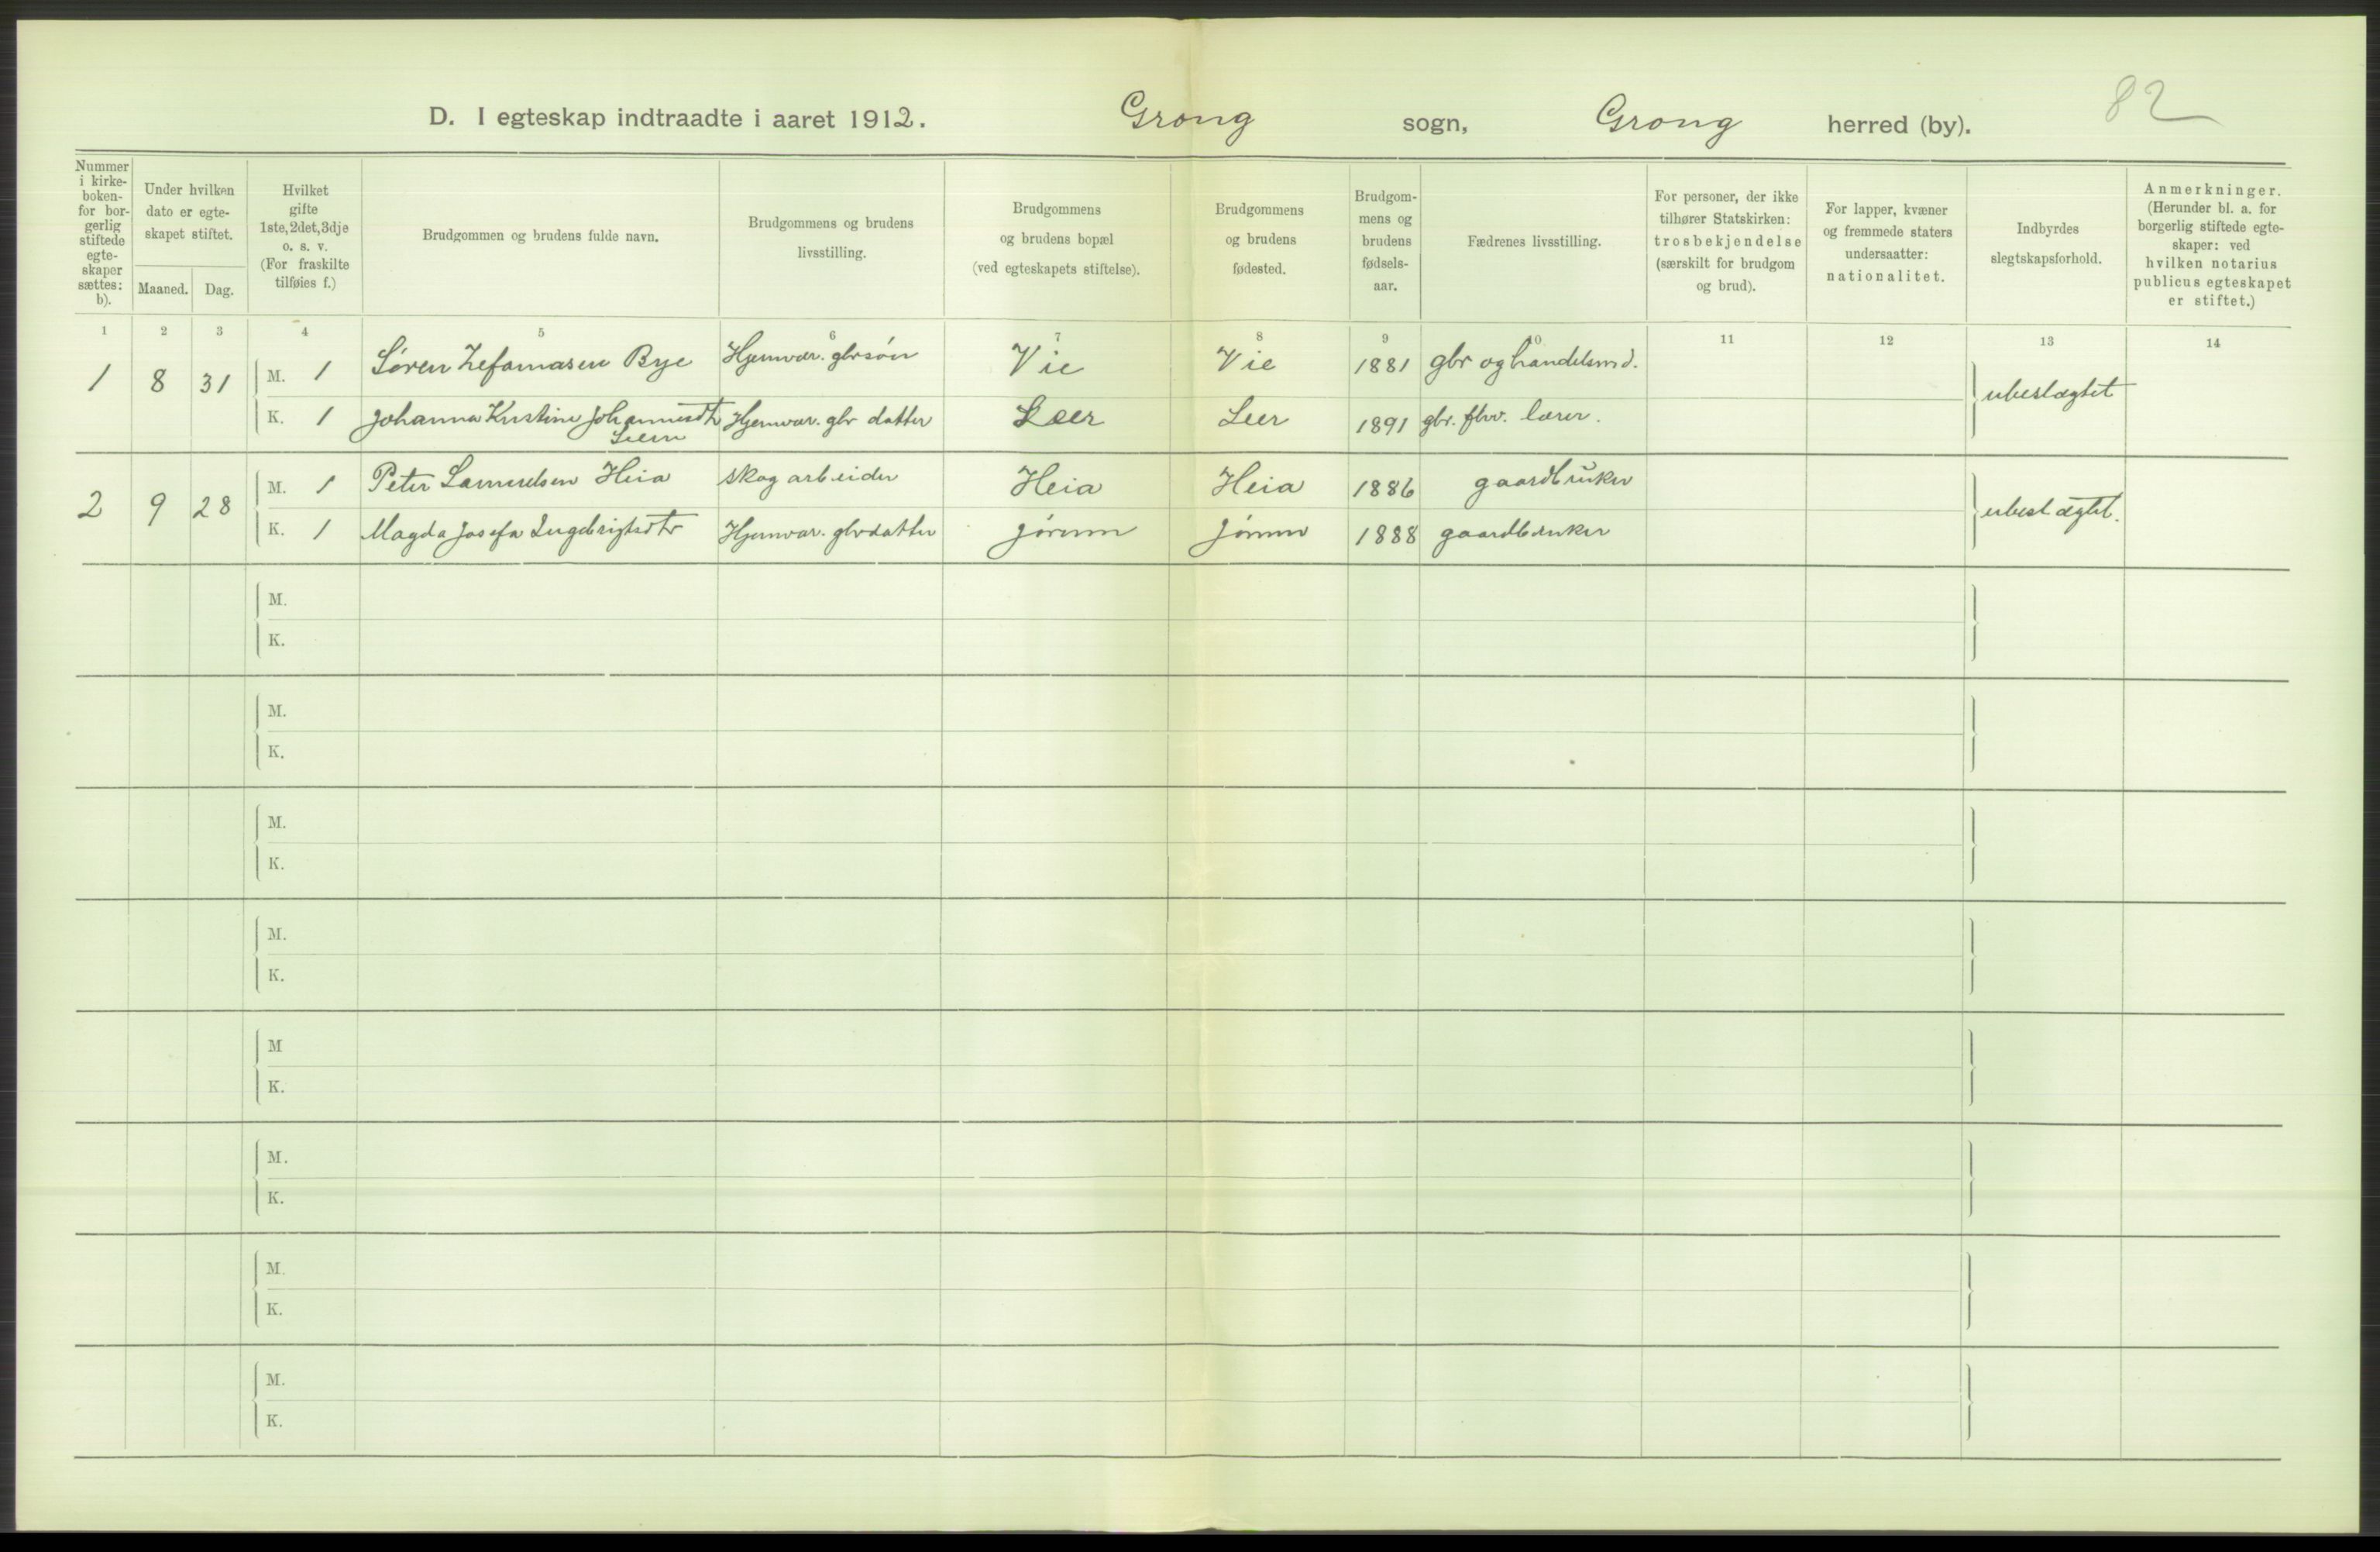 82
D. I egteskap indtraadte i aaret 1912. Grong sogn, Grong herred (by).
Nummer
i kirke-
boken-
for bor-
gerlig
stiftede
egte-
skaper
sættes:
b).
Under hvilken
dato er egte-
skapet stiftet.
Maaned. Dag.
Hvilket
gifte
1ste, 2det, 3dje
o. s. v.
(For fraskilte
tilføies f.)
Brudgommen og brudens fulde navn.
Brudgommens og brudens
livsstilling.
Brudgommens
og brudens bopæl
(ved egteskapets stiftelse).
Brudgommens
og brudens
fødested.
Brudgom-
mens og
brudens
fødsels-
aar.
Fædrenes livsstilling.
For personer, der ikke
tilhører Statskirken:
trosbekjendelse
(særskilt for brudgom
og brud).
For lapper, kvæner
og fremmede staters
undersaatter:
nationalitet.
Indbyrdes
slegtskapsforhold.
Anmerkninger.
(Herunder bl. a. for
borgerlig stiftede egte-
skaper: ved
hvilken notarius
publicus egteskapet
er stiftet.)
1 2 3 4 5 6 7 8 9 10 11 12 13 14
1 8 31 M. 1 Søren Zefaniasen Bye Hjemvær. gbrsøn Vie Vie 1881 gbr og handelsmd. ubeslægtet
K. 1 Johanna Kristine Johannesdtr Hjemvær. gbr datter Leer Leer 1891 gbr. fhv. lærer.
2 9 28 M. 1 Peter Samuelsen Heia skogarbeider Heia Heia 1886 gaardbruker ubeslægtet.
K. 1 Magda Josefa Ingebrigtsdtr Hjemvær. gbrdatter Jørum Jørum 1888 gaardbruker
M.
K.
M.
K.
M.
K.
M.
K.
M
K.
M.
K.
M.
K.
M.
K.